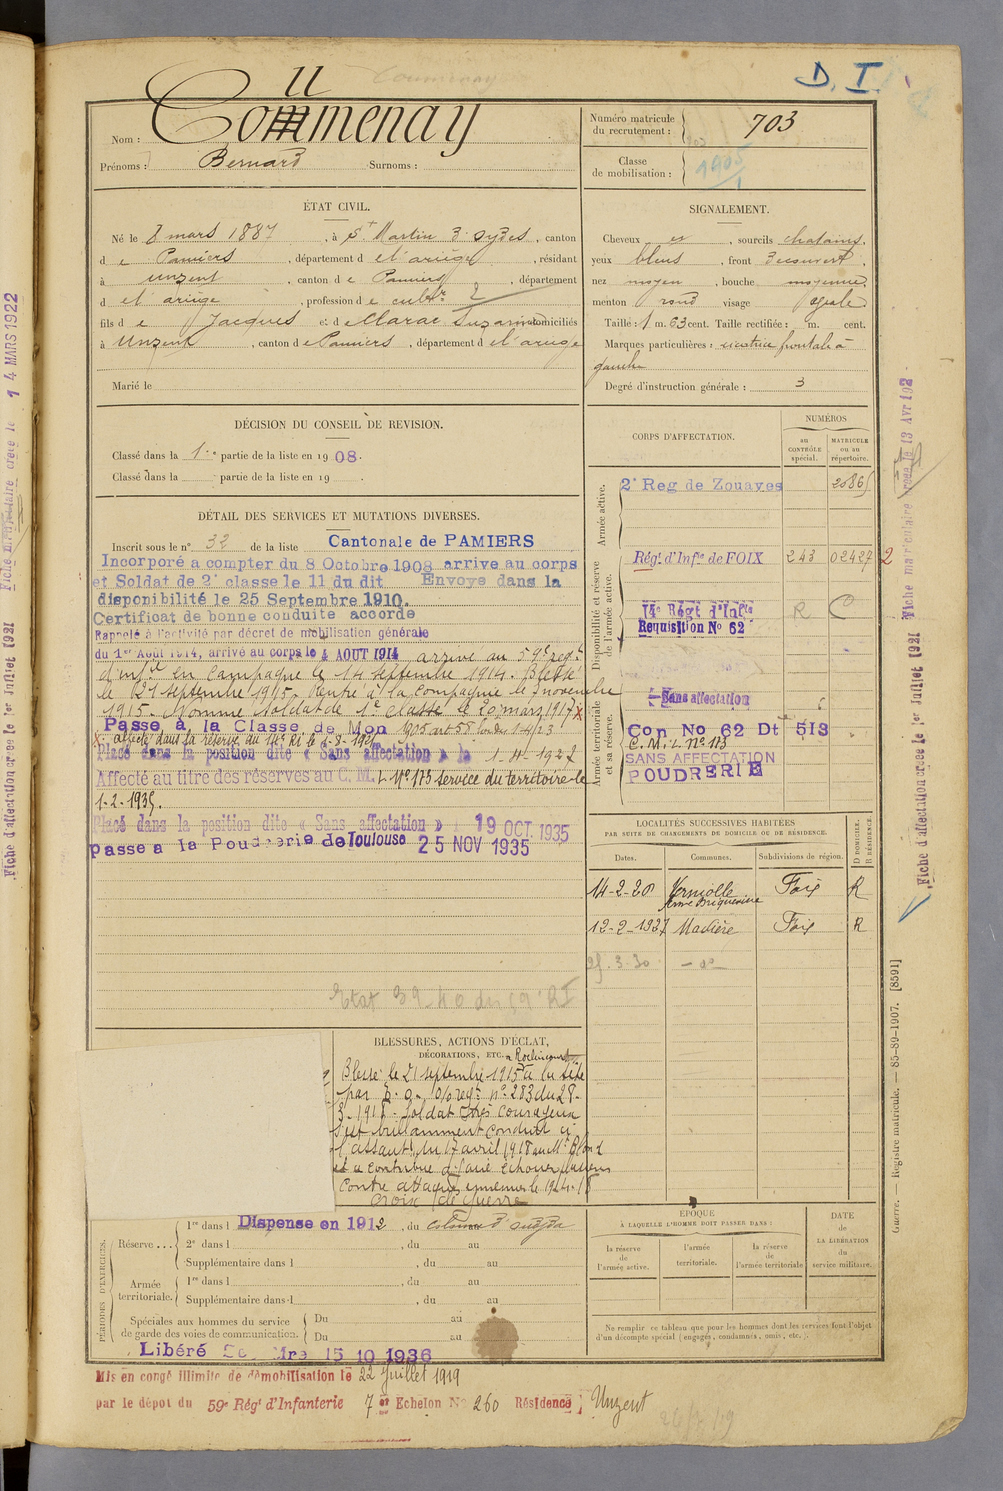 D. I.
Nom : Commenay
uu
Prénoms : Bernard Surnoms :
Numéro matricule du recrutement : 703
Classe de mobilisation : 1905
ÉTAT CIVIL.
Né le 8 mars 1887, à St Martin d'oydes, canton
d e Pamiers, département d e l'ariège, résidant
à Unzent, canton d e Pamiers, département
d e l'ariège, profession d e cultr
fils d e Jacques et d e Clarac Suzanne domiciliés
à Unzent, canton d e Pamiers, département d e l'ariège
Marié le
SIGNALEMENT.
Cheveux et, sourcils chatains,
yeux bleus, front découvert,
nez moyen, bouche moyenne,
menton rond visage ovale
Taille : 1 m. 63 cent. Taille rectifiée : m. cent.
Marques particulières : cicatrice frontale à
gauche
Degré d'instruction générale : 3
DÉCISION DU CONSEIL DE REVISION.
Classé dans la 1re partie de la liste en 1908.
Classé dans la partie de la liste en 19
DÉTAIL DES SERVICES ET MUTATIONS DIVERSES.
Inscrit sous le n° 32 de la liste Cantonale de PAMIERS
Incorporé a compter du 8 Octobre 1908 arrive au corps
et Soldat de 2e classe le 11 du dit Envoye dans la
disponibilité le 25 Septembre 1910.
Certificat de bonne conduite accordé
Rappelé à l'activité par décret de mobilisation générale
du 1er Août 1914, arrivé au corps le 4 AOUT 1914 arrivé au 59e regt
d'infie en campagne le 14 septembre 1914. Blessé
le 21 septembre 1915. Rentré à la compagnie le 3 novembre
1915. Nommé soldat de 1e classe le 20 mars 1917 x
Passe à la Classe de Mon 1905 art 58 loi du 1-4/23
x affecté dans la réserve au 14e RI le
Placé dans la position dite « Sans affectation » le 1-4-1927
Affecté au titre des réserves au C. M. L. N° 173 service du territoire le
1-2-1935.
Placé dans la position dite « Sans affectation » 19 OCT. 1935
passe a la Poudrerie de Toulouse 25 NOV 1935
Etat 39-40 du
CORPS D'AFFECTATION.
NUMÉROS
au CONTRÔLE spécial.
MATRICULE ou au répertoire.
Armée active.
2e Reg de Zouaves
Disponibilité et réserve de l'armée active.
Régt d'Infie de FOIX 243 02427 2
14e Régt d'Infie R
Requisition N° 62
Armée territoriale et sa réserve.
Sans affectation
Con No 62 Dt 513
C. M. L. N° 173
SANS AFFECTATION
POUDRERIE
LOCALITÉS SUCCESSIVES HABITÉES
PAR SUITE DE CHANGEMENTS DE DOMICILE OU DE RÉSIDENCE.
Dates. Communes. Subdivisions de région. D DOMICILE. R RÉSIDENCE.
14-2-20 Verniolle Foix R
12-2-1927 Madière Foix R
25-3-30 - do -
BLESSURES, ACTIONS D'ÉCLAT,
DÉCORATIONS, ETC.
à Roclincourt
Blessé le 21 septembre 1915 à la tête
par E. o. Ordre regt n° 283 du 28-
3-1918. Soldat très courageux
s'est brillamment conduit à
l'assaut du 17 avril 1918 au Mt Blond
et a contribué à faire échouer plusieurs
contre attaques ennemies le 19-4-18
Croix de guerre
PÉRIODES D'EXERCICES.
Réserve ... 1re dans l Dispense en 1912, du
2e dans l , du au
Supplémentaire dans l , du au
Armée territoriale. 1re dans l , du au
Supplémentaire dans l , du au
Spéciales aux hommes du service de garde des voies de communication. Du au
Du au
Libéré 15 10 1936
ÉPOQUE
À LAQUELLE L'HOMME DOIT PASSER DANS :
la réserve de l'armée active.
l'armée territoriale.
la réserve de l'armée territoriale
DATE de LA LIBÉRATION du service militaire.
Ne remplir ce tableau que pour les hommes dont les services font l'objet
d'un décompte spécial (engagés, condamnés, omis, etc.).
Mis en congé illimité de démobilisation le 22 Juillet 1919
par le dépot du 59e Régt d'Infanterie 7e Echelon N° 260 Résidence Unzent
Guerre. — Registre matricule. — 85-89-1907. [8591]
Fiche d'affectation créée le 1er Juillet 1921 Fiche matriculaire créée le 13 Avr 192
Fiche d'affectation créée le 1er Juillet 1921 Fiche matriculaire créée le 14 MARS 1922